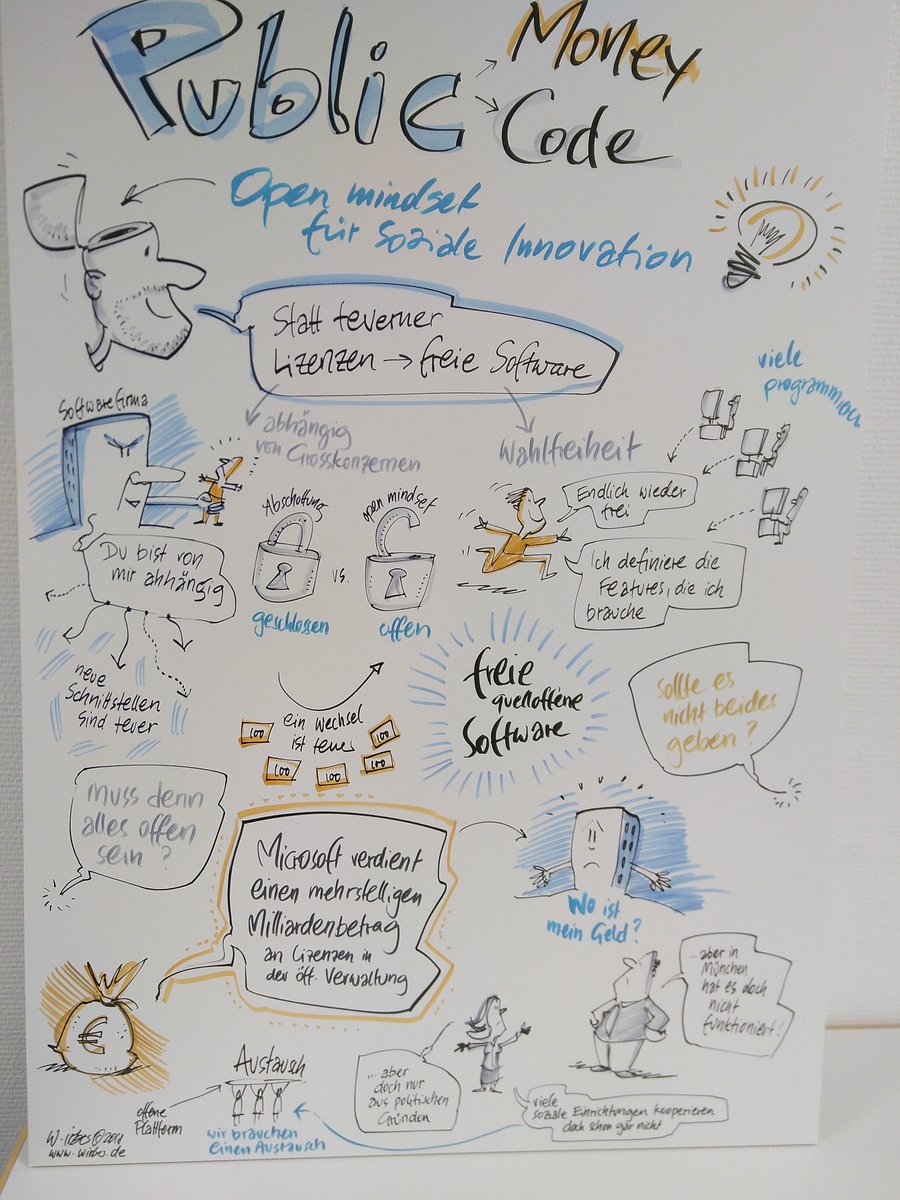 Public
Money
Code
Open mindset
für soziale Innovation
Statt teverner
Lizenzen → freie Software
viele
programmieren
Softwarefirma
abhängig
von Grosskonzernen
Wahlfreiheit
Abschottung
open mindset
Endlich wieder
frei
Du bist von
mir abhängig
vs.
Ich definiere die
Features, die ich
brauche
geschlossen
offen
neue
Schnittstellen
sind teuer
ein Wechsel
ist teuer
100
100
100
100
100
freie
quelloffene
Software
Sollte es
nicht beides
geben?
muss denn
alles offen
sein?
Microsoft verdient
einen mehrstelligen
Milliardenbetrag
an Lizenzen in
der öff. Verwaltung
Wo ist
mein Geld?
...aber in
München
hat es doch
nicht
funktioniert!
€
Austausch
... aber
doch nur
aus politischen
Gründen
offene
Plattform
wir brauchen
einen Austausch
viele
soziale Einrichtungen kooperieren
doch schon gar nicht
www.wirbs.de